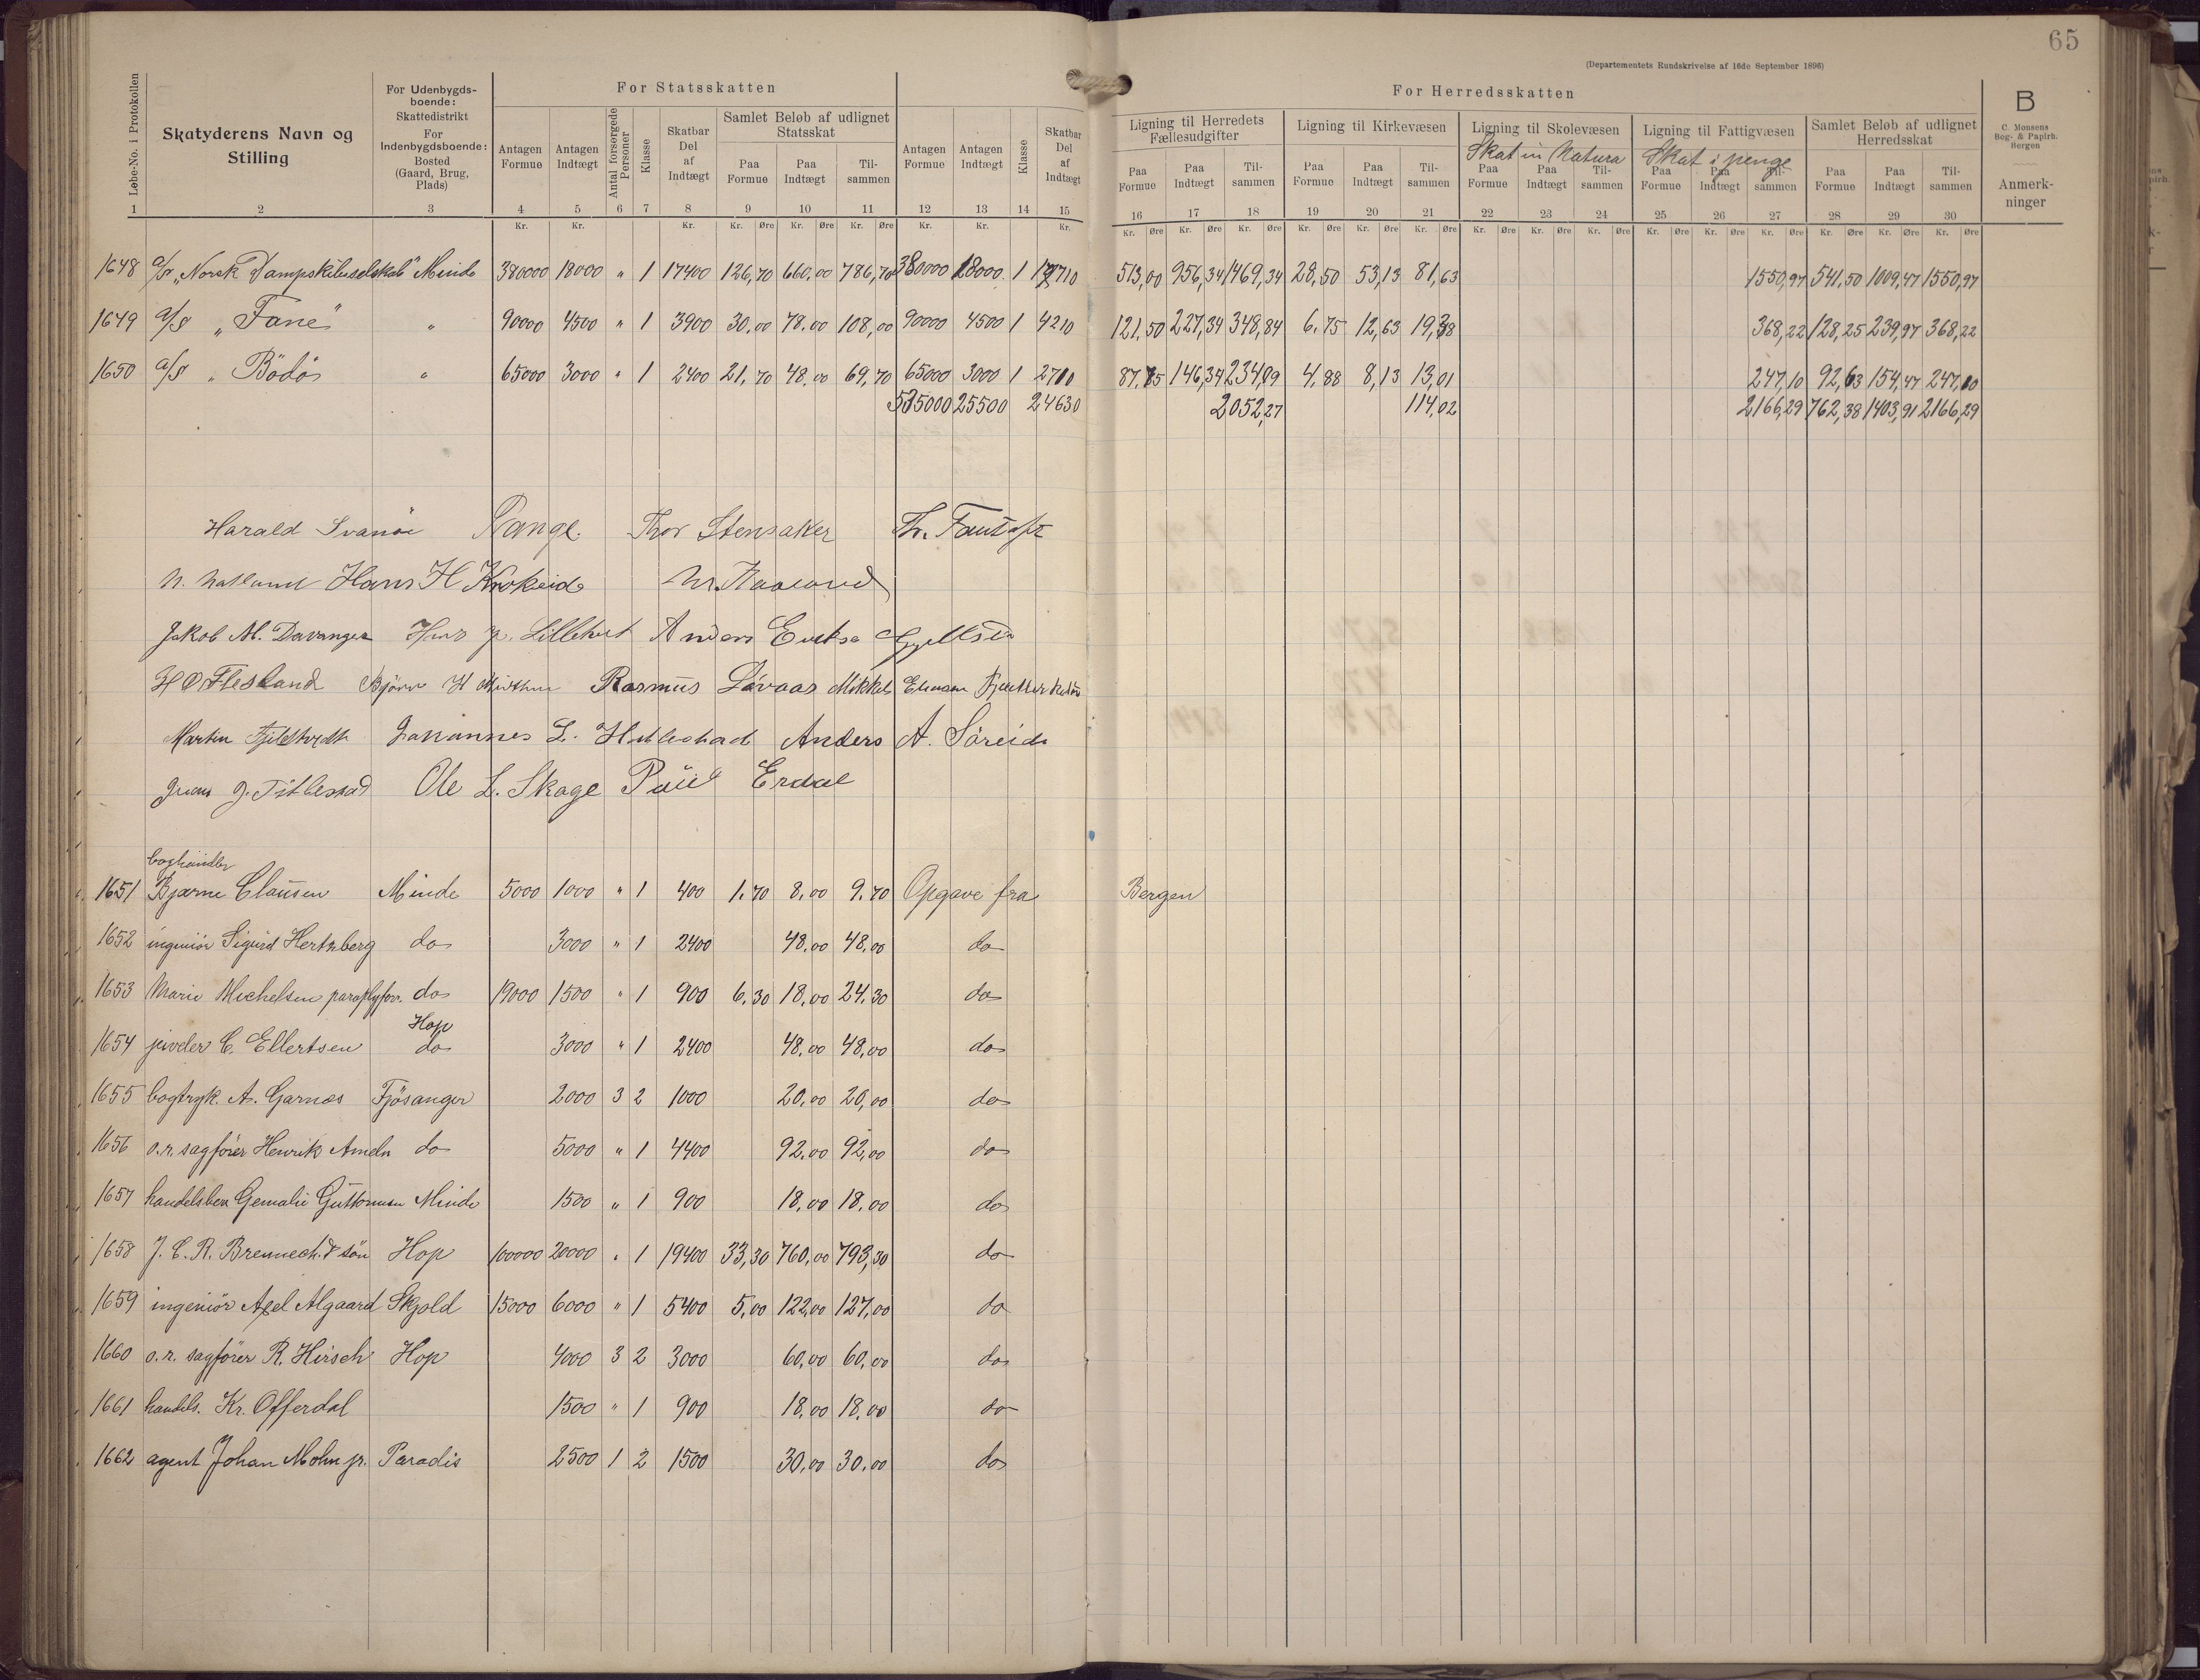 65
(Departementets Rundskrivelse af 16de September 1896)
For Statsskatten
For Herredsskatten
B
C. Monsens Bog- & Papirh. Bergen
Løbe-No. i Protokollen
Skatyderens Navn og Stilling
For Udenbygdsboende: Skattedistrikt For Indenbygdsboende: Bosted (Gaard, Brug, Plads)
Antagen Formue
Antagen Indtægt
Antal forsørgede Personer
Klasse
Skatbar Del af Indtægt
Samlet Beløb af udlignet Statsskat
Paa Formue Paa Indtægt Tilsammen
Antagen Formue
Antagen Indtægt
Klasse
Skatbar Del af Indtægt
Ligning til Herredets Fællesudgifter
Paa Formue Paa Indtægt Tilsammen
Ligning til Kirkevæsen
Paa Formue Paa Indtægt Tilsammen
Ligning til Skolevæsen
Skat in Natura
Paa Formue Paa Indtægt Tilsammen
Ligning til Fattigvæsen
Skat i penge
Paa Formue Paa Indtægt Tilsammen
Samlet Beløb af udlignet Herredsskat
Paa Formue Paa Indtægt Tilsammen
Anmerkninger
1 2 3 4 5 6 7 8 9 10 11 12 13 14 15 16 17 18 19 20 21 22 23 24 25 26 27 28 29 30
Kr. Kr. Kr. Kr. Øre Kr. Øre Kr. Øre Kr. Kr. Kr. Kr. Øre Kr. Øre Kr. Øre Kr. Øre Kr. Øre Kr. Øre Kr. Øre Kr. Øre Kr. Øre Kr. Øre Kr. Øre Kr. Øre Kr. Øre Kr. Øre Kr. Øre
1648 a/s „Norsk Dampskibsselskab" Minde 380000 18000 " 1 17400 126,70 660,00 786,70 380000 18000 1 17710 513,00 956,34 1469,34 28,50 53,13 81,63 1550,97 541,50 1009,47 1550,97
1649 a/s „Fane" " 90000 4500 " 1 3900 30,00 78,00 108,00 90000 4500 1 4210 121,50 227,34 348,84 6,75 12,63 19,38 368,22 128,25 239,97 368,22
1650 a/s „Bödö " 65000 3000 " 1 2400 21,70 48,00 69,70 65000 3000 1 2710 87,75 146,34 234,09 4,88 8,13 13,01 247,10 92,63 154,47 247,10
535000 25500 24630 2052,27 114,02 2166,29 762,38 1403,91 2166,29
Harald Svanöe Range. Thor Stensaker Th. Fantoft
N. Natland Hans H Krokeide
Jakob M. Davanger Anders
H O Flesland Rasmus Lövaas Mikkel
Martin Johannes L. Hatlestad Anders A. Söreide
J. Titlestad Ole L. Skage Poul Erdal
boghandler
1651 Bjarne Clausen Minde 5000 1000 " 1 400 1,70 8,00 9,70 Opgave fra Bergen
1652 ingeniör Sigurd Hertzberg do 3000 " 1 2400 48,00 48,00 do
1653 Marie Michelsen paraplyforr. do 19000 1500 " 1 900 6,30 18,00 24,30 do
Hop
1654 juveler C. Ellertsen do 3000 " 1 2400 48,00 48,00 do
1655 bogtryk. A. Garnæs Fjösanger 2000 3 2 1000 20,00 20,00 do
1656 o.r. sagförer Henrik Ameln do 5000 " 1 4400 92,00 92,00 do
1657 handelsbest. Guttormsen Minde 1500 " 1 900 18,00 18,00 do
1658 J. C. R. Brennech. & sön Hop 100000 20000 " 1 19400 33,30 760,00 793,30 do
1659 ingeniör Axel Algaard Skjold 15000 6000 " 1 5400 5,00 122,00 127,00 do
1660 o.r. sagförer R. Hirsch Hop 4000 3 2 3000 60,00 60,00 do
1661 handels. Kr. Offerdal 1500 " 1 900 18,00 18,00 do
1662 agent Johan Mohn jr. Paradis 2500 1 2 1500 30,00 30,00 do